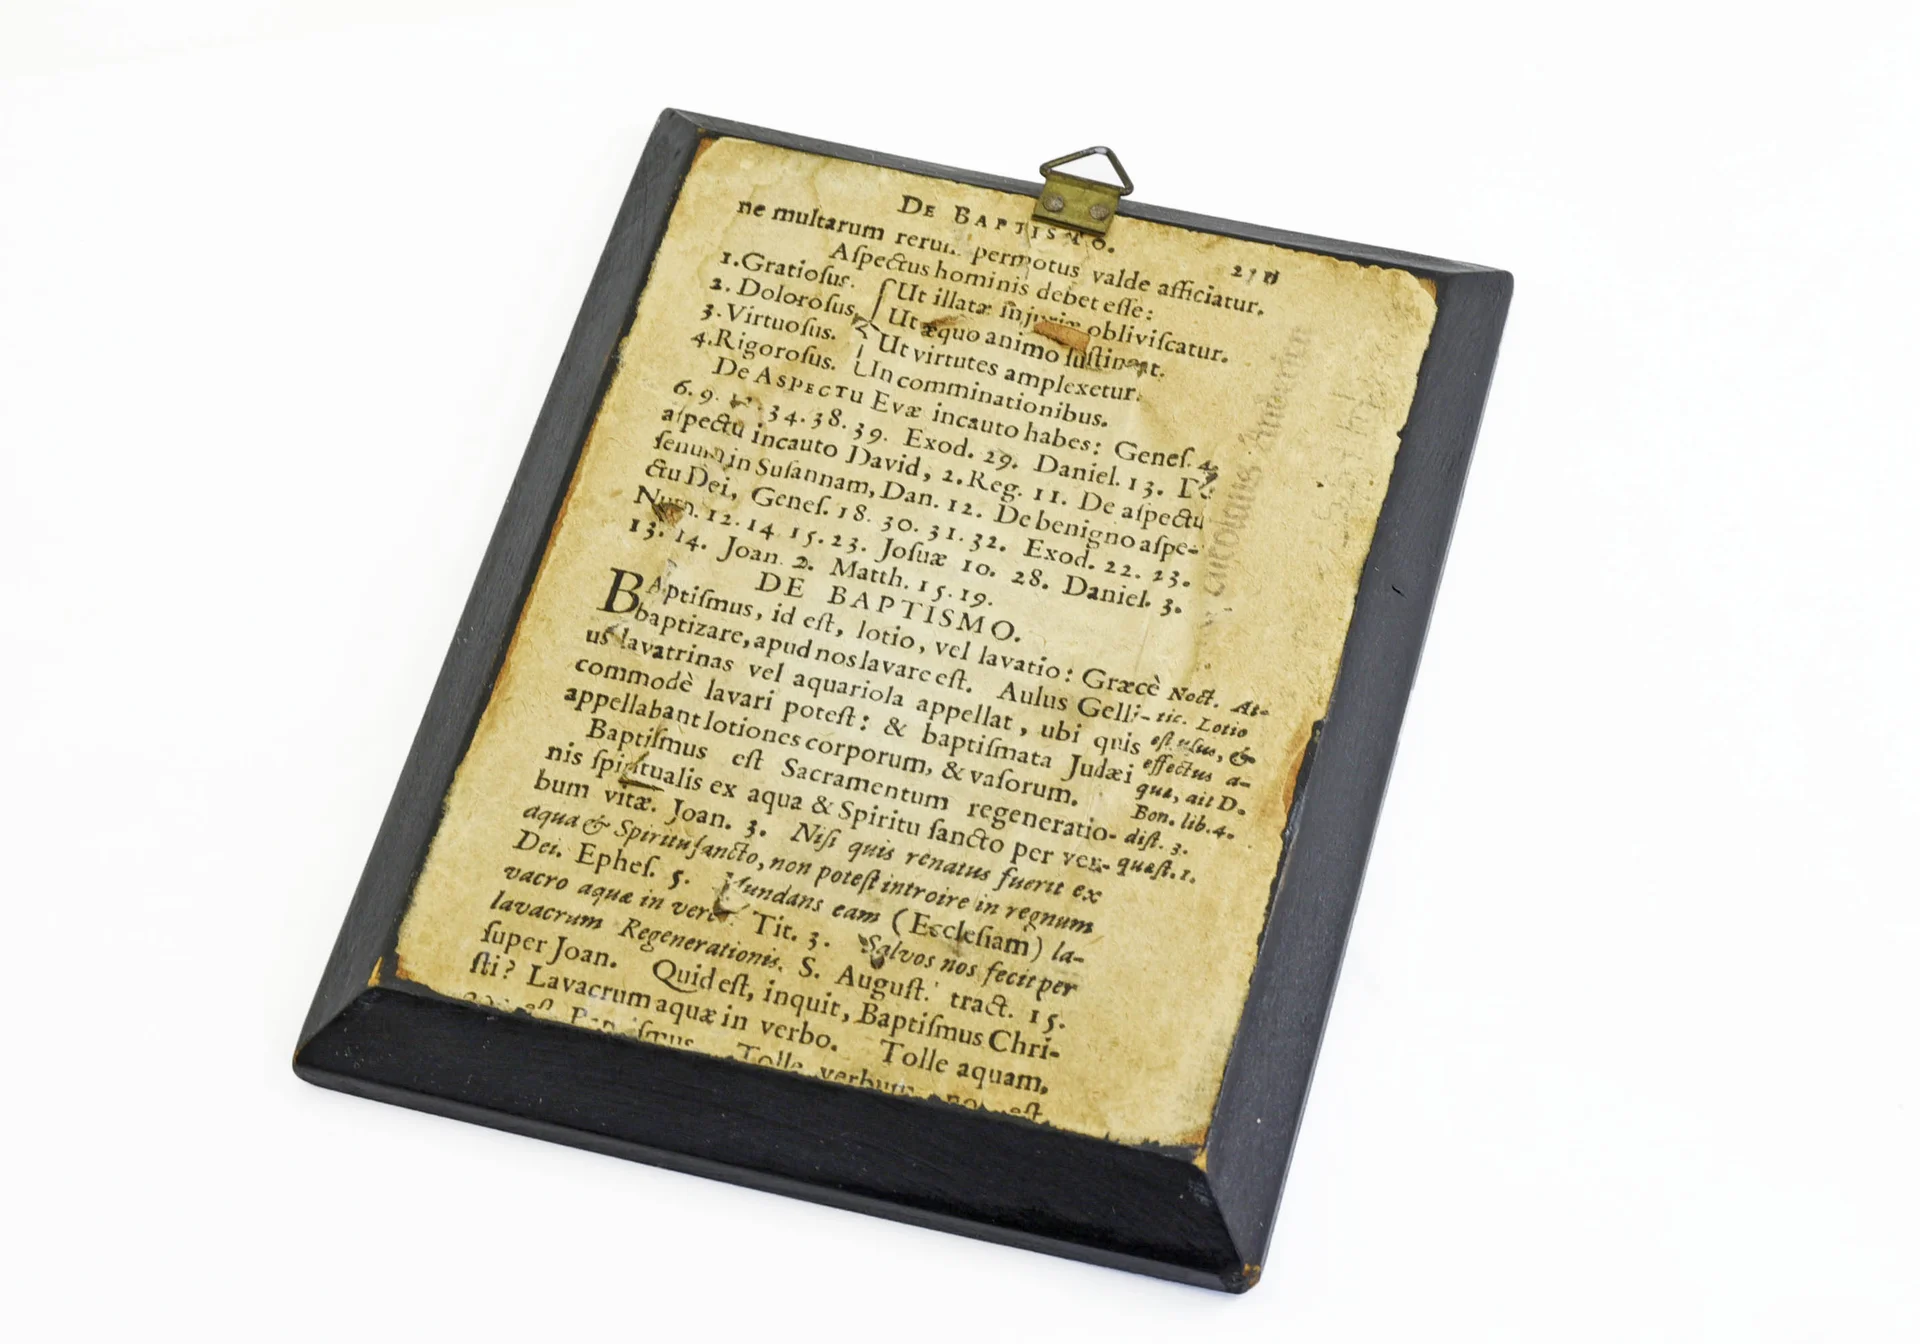 DE BAPTISMO.
ne multarum rerum permotus valde afficiatur.
Aſpectus hominis debet eſſe:
1. Gratioſus. Ut illatæ injuriæ obliviſcatur.
2. Doloroſus. Ut æquo animo ſuſtineat.
3. Virtuoſus. Ut virtutes amplexetur.
4. Rigoroſus. In comminationibus.
De ASPECTU Evæ incauto habes: Geneſ. 4.
6. 9. 34. 38. 39. Exod. 29. Daniel. 13. De
aſpectu incauto David, 2. Reg. 11. De aſpectu
ſenum in Suſannam, Dan. 12. De benigno aſpe-
ctu Dei, Geneſ. 18. 30. 31. 32. Exod. 22. 23.
Num. 12. 14. 15. 23. Joſuæ 10. 28. Daniel. 3.
13. 14. Joan. 2. Matth. 15. 19.
DE BAPTISMO.
BAptiſmus, id eſt, lotio, vel lavatio: Græcè
baptizare, apud nos lavare eſt. Aulus Gelli-
us lavatrinas vel aquariola appellat, ubi quis
commodè lavari poteſt: & baptiſmata Judæi
appellabant lotiones corporum, & vaſorum.
Baptiſmus eſt Sacramentum regeneratio-
nis ſpiritualis ex aqua & Spiritu ſancto per ver-
bum vitæ. Joan. 3. Niſi quis renatus fuerit ex
aqua & Spiritu ſancto, non poteſt introire in regnum
Dei. Epheſ. 5. Mundans eam (Eccleſiam) la-
vacro aquæ in verbo. Tit. 3. Salvos nos fecit per
lavacrum Regenerationis. S. Auguſt. tract. 15.
ſuper Joan. Quid eſt, inquit, Baptiſmus Chri-
ſti? Lavacrum aquæ in verbo. Tolle aquam,
eſt Baptiſmus. Tolle verbum eſt
Noct. At-
tic. Lotio
eſt uſus, &
effectus a-
qua, ait D.
Bon. lib. 4.
diſt. 3.
quæſt. 1.